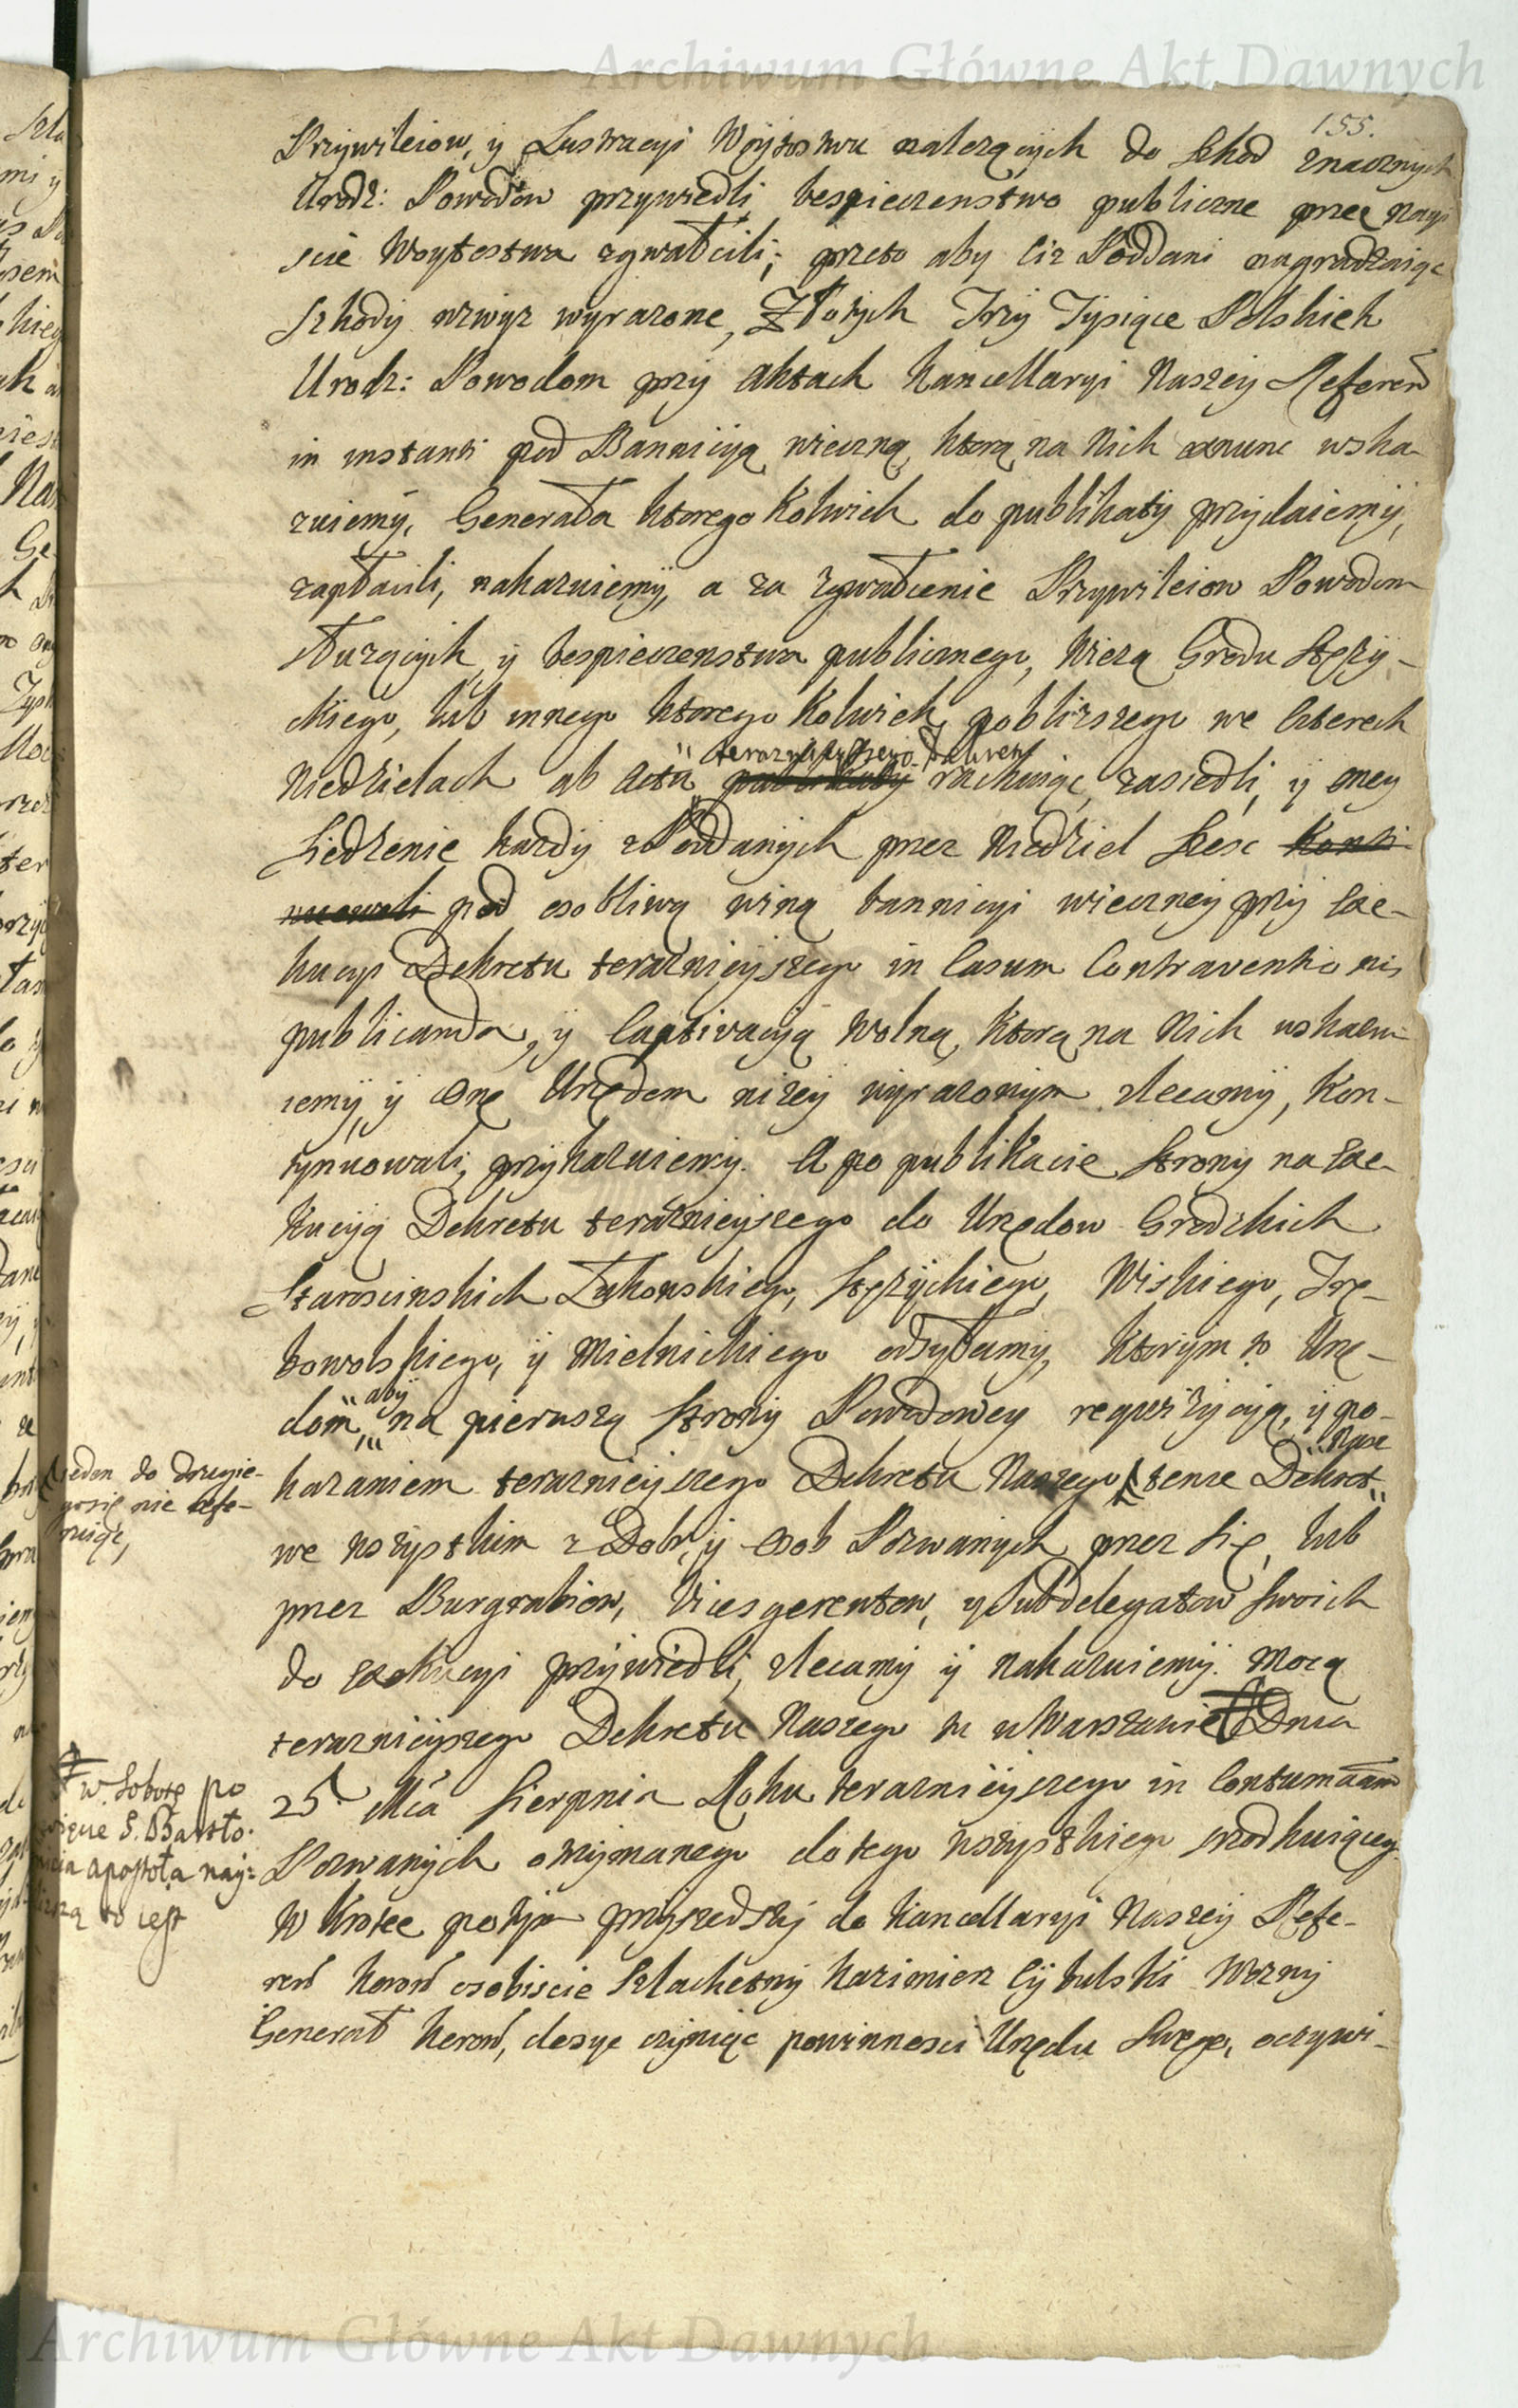 Archiwum Główne Akt Dawnych
155.
Przywileiow, y Lustracyi Woytostwu nalezących do Szkod znacznych
Urodz: Powodow przywiedli bespieczenstwo publiczne przez Nays
scie Woytostwa zgwałcili; przeto aby ciz Poddani nagradzaiąc
Szkody wzwyz wyrazone, Złotych Trzy Tysiące Polskich
Urodz: Powodom przy Aktach Kancellaryi Naszey Referen
in instanti pod Bannicyą wieczną, ktorą na Nich exnunc wska-
zuiemy, Generała ktorego Kolwiek do publikaty przydaiemy,
zapłacili, nakazuiemy, a za zgwałcenie Przywileiow Powodom
słuzących y bespieczenstwa publicznego, Wiezą Grodu Stęzy-
ckiego, lub innego ktorego Kolwiek pobliższego we czterech
teraznieyszego Dekretu
Niedzielach ab Actu publikaty rachuiąc, zasiedli, y oney
Siedzenie kazdy z Poddanych przez Niedziel Szesc Konti-
nuowali pod osobliwą winą bannicyi wieczney przy Exe-
kucyi Dekretu teraznieyszego in Casum Contraventionis
publicanda, y Captivacyą Wolną, ktorą na Nich wskazu-
iemy, y onę Urzędom nizey wyrazonym zlecamy, Kon-
tynuowali, przykazuiemy. A po publikacie Strony na Exe-
kucyą Dekretu teraznieyszego do Urzędow Grodzkich
Staroscinskich Łukowskiego, Stęzyckiego, Wiskiego, Trę-
bowolskiego, y Mielnickiego odsyłamy, ktorym to Urzę-
aby
dom, na pierwszą Strony Powodowey requizycyą, y po-
Nasz
kazaniem teraznieyszego Dekretu Naszego tenze Dekret
jeden do drugie-
go się nie refe-
ruiąc,
we wszystkim z Dobr, y Osob Pozwanych przez się, lub
przez Burgrabiow, Vicesgerentow, y Subdelegatow swoich
do exekucyi przywiedli, zlecamy y nakazuiemy. Mocą
teraznieyszego Dekretu Naszego tu w Warszawie Dnia
w Sobotę po
S. Bartło-
Apostoła nay-
to iest
25. Mca Sierpnia Roku teraznieyszego in Contumaciam
Pozwanych otrzymanego do tego wszystkiego srodkuiącey
W krotce potym przyszedszy do Kancellaryi Naszey Refe-
ren Koron osobiscie Szlachetny Kazimierz Cybulski Wozny
Generał Koron, dosyc czyniąc powinnosci Urzędu Swego, oczywi-
Archiwum Główne Akt Dawnych